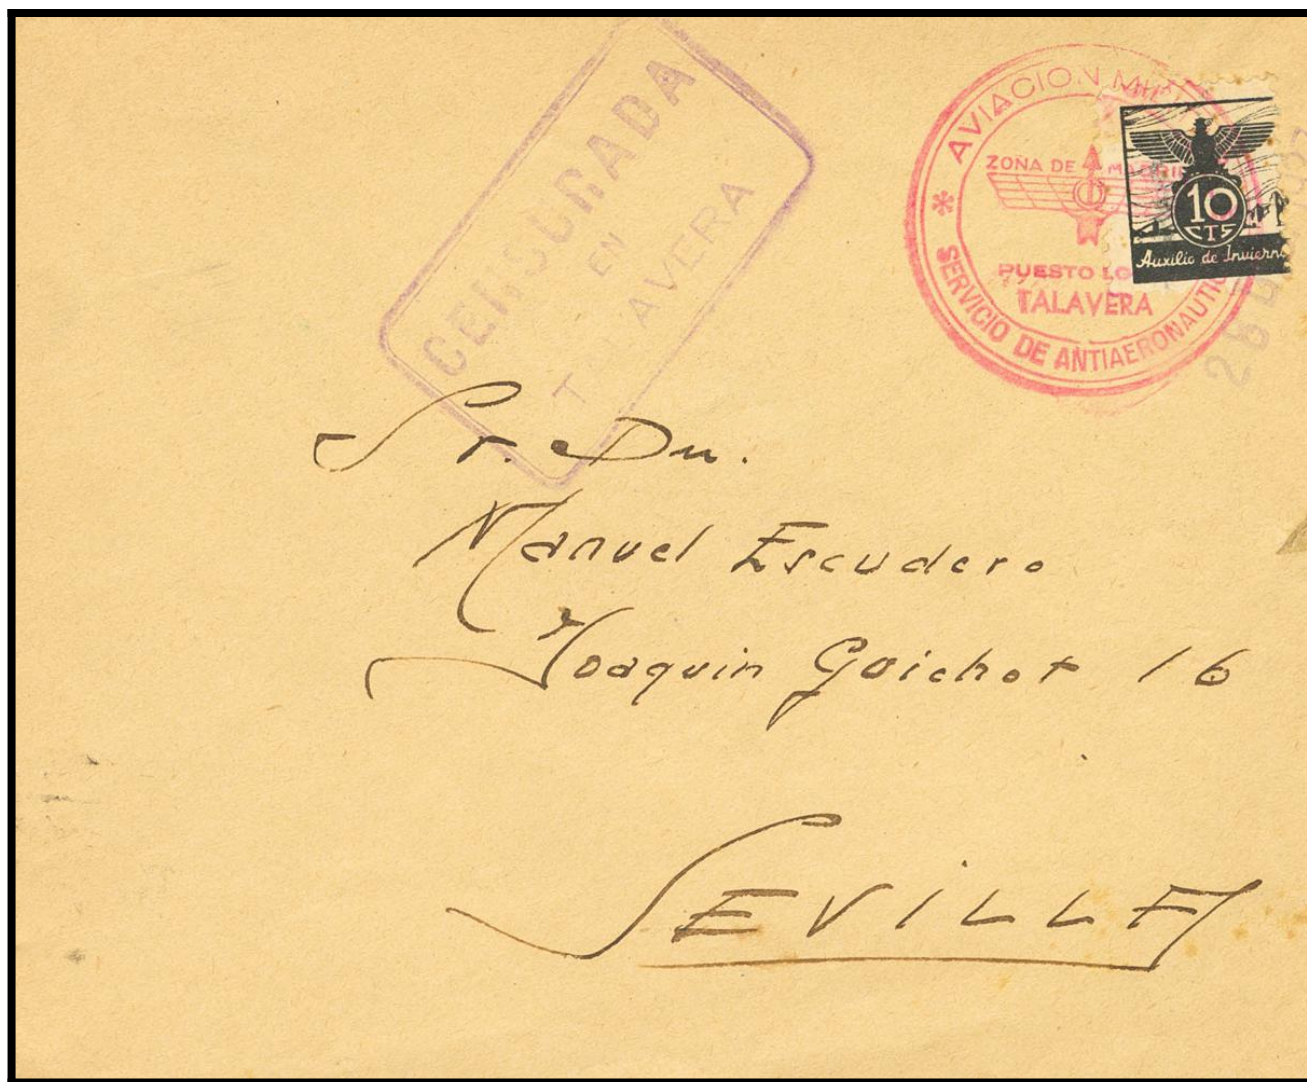 CENSURADA
EN
TALAVERA
* AVIACION
ZONA DE MADRID
PUESTO
TALAVERA
SERVICIO DE ANTIAERONAUTICA
10
CTS
Auxilio de Invierno
Sr. Dn.
Manuel Escudero
Joaquin Guichot 16
SEVILLA